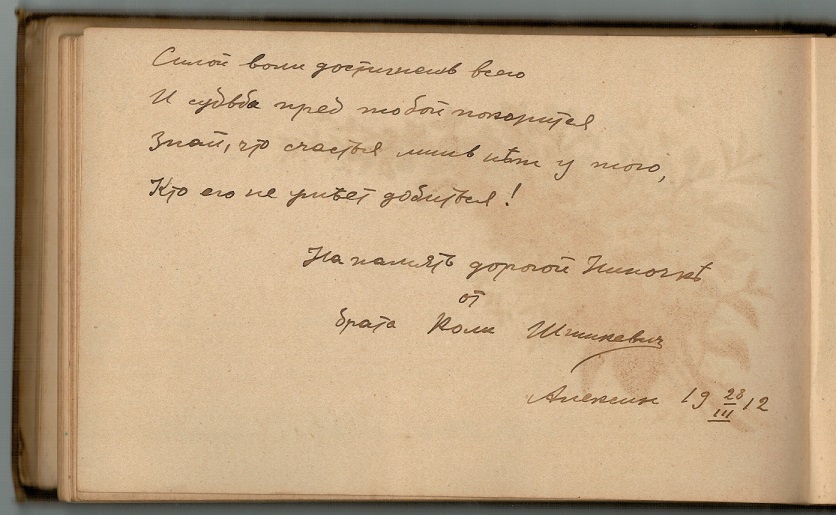 Силой воли достигнешь всего
И судьба пред тобой покорится
Знай, что счастья лишь нѣт у того,
Кто его не умѣет добиться!
На память дорогой Ниночкѣ
от
брата Коли
Алексин 19 23/III 12